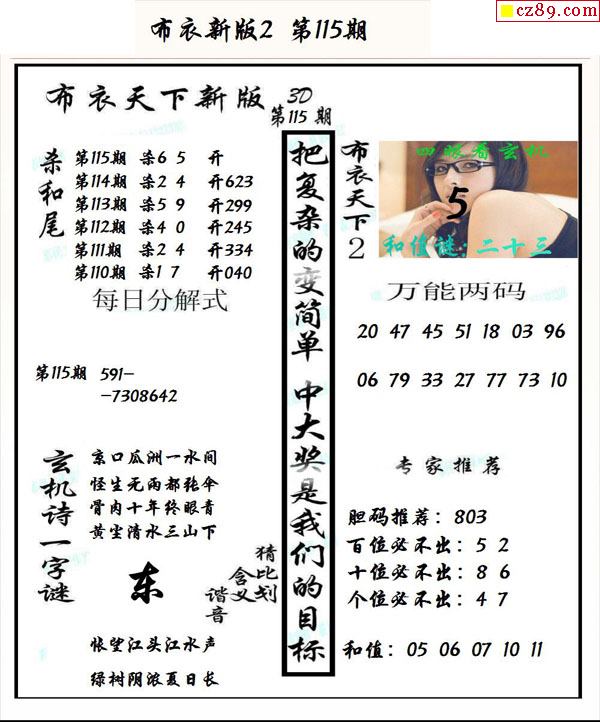 cz89.com
布衣新版2 第115期
布衣天下新版 3D
第115期
杀和尾
第115期 杀6 5 开
第114期 杀2 4 开623
第113期 杀5 9 开299
第112期 杀4 0 开245
第111期 杀2 4 开334
第110期 杀1 7 开040
每日分解式
第115期 591-
-7308642
玄机诗一字谜
京口瓜洲一水间
怪生无雨都张伞
骨肉十年终眼青
黄尘清水三山下
东
猜比划
含义
谐音
怅望江头江水声
绿树阴浓夏日长
把复杂的变简单 中大奖是我们的目标
布衣天下2
四眼看玄机
5
和值谜:二十三
万能两码
20 47 45 51 18 03 96
06 79 33 27 77 73 10
专家推荐
胆码推荐：803
百位必不出：5 2
十位必不出：8 6
个位必不出：4 7
和值：05 06 07 10 11